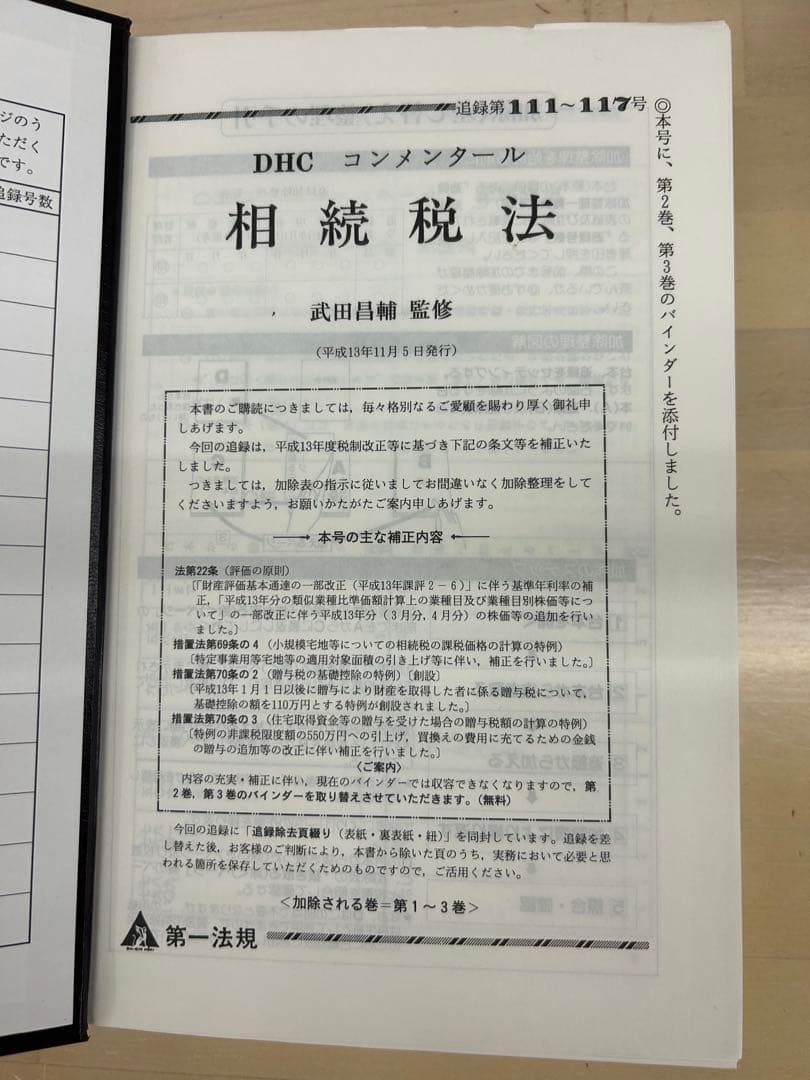 ジのう
ただく
です。
追録号数
追録第111～117号
◎本号に、第2巻、第3巻のバインダーを添付しました。
DHC コンメンタール
相続税法
武田昌輔 監修
（平成13年11月5日発行）
本書のご購読につきましては，毎々格別なるご愛顧を賜わり厚く御礼申
しあげます。
今回の追録は，平成13年度税制改正等に基づき下記の条文等を補正いた
しました。
つきましては，加除表の指示に従いましてお間違いなく加除整理をして
くださいますよう，お願いかたがたご案内申しあげます。
本号の主な補正内容
法第22条（評価の原則）
〔「財産評価基本通達の一部改正（平成13年課評2－6）」に伴う基準年利率の補
正，「平成13年分の類似業種比準価額計算上の業種目及び業種目別株価等につ
いて」の一部改正に伴う平成13年分（3月分，4月分）の株価等の追加を行い
ました。〕
措置法第69条の4（小規模宅地等についての相続税の課税価格の計算の特例）
〔特定事業用等宅地等の適用対象面積の引き上げ等に伴い，補正を行いました。〕
措置法第70条の2（贈与税の基礎控除の特例）〔創設〕
〔平成13年1月1日以後に贈与により財産を取得した者に係る贈与税について，
基礎控除の額を110万円とする特例が創設されました。〕
措置法第70条の3（住宅取得資金等の贈与を受けた場合の贈与税額の計算の特例）
〔特例の非課税限度額の550万円への引上げ，買換えの費用に充てるための金銭
の贈与の追加等の改正に伴い補正を行いました。〕
〈ご案内〉
内容の充実・補正に伴い，現在のバインダーでは収容できなくなりますので，第
2巻，第3巻のバインダーを取り替えさせていただきます。（無料）
今回の追録に「追録除去頁綴り（表紙・裏表紙・紐）」を同封しています。追録を差
し替えた後，お客様のご判断により，本書から除いた頁のうち，実務において必要と思
われる箇所を保存していただくためのものですので，ご活用ください。
＜加除される巻＝第1～3巻＞
第一法規